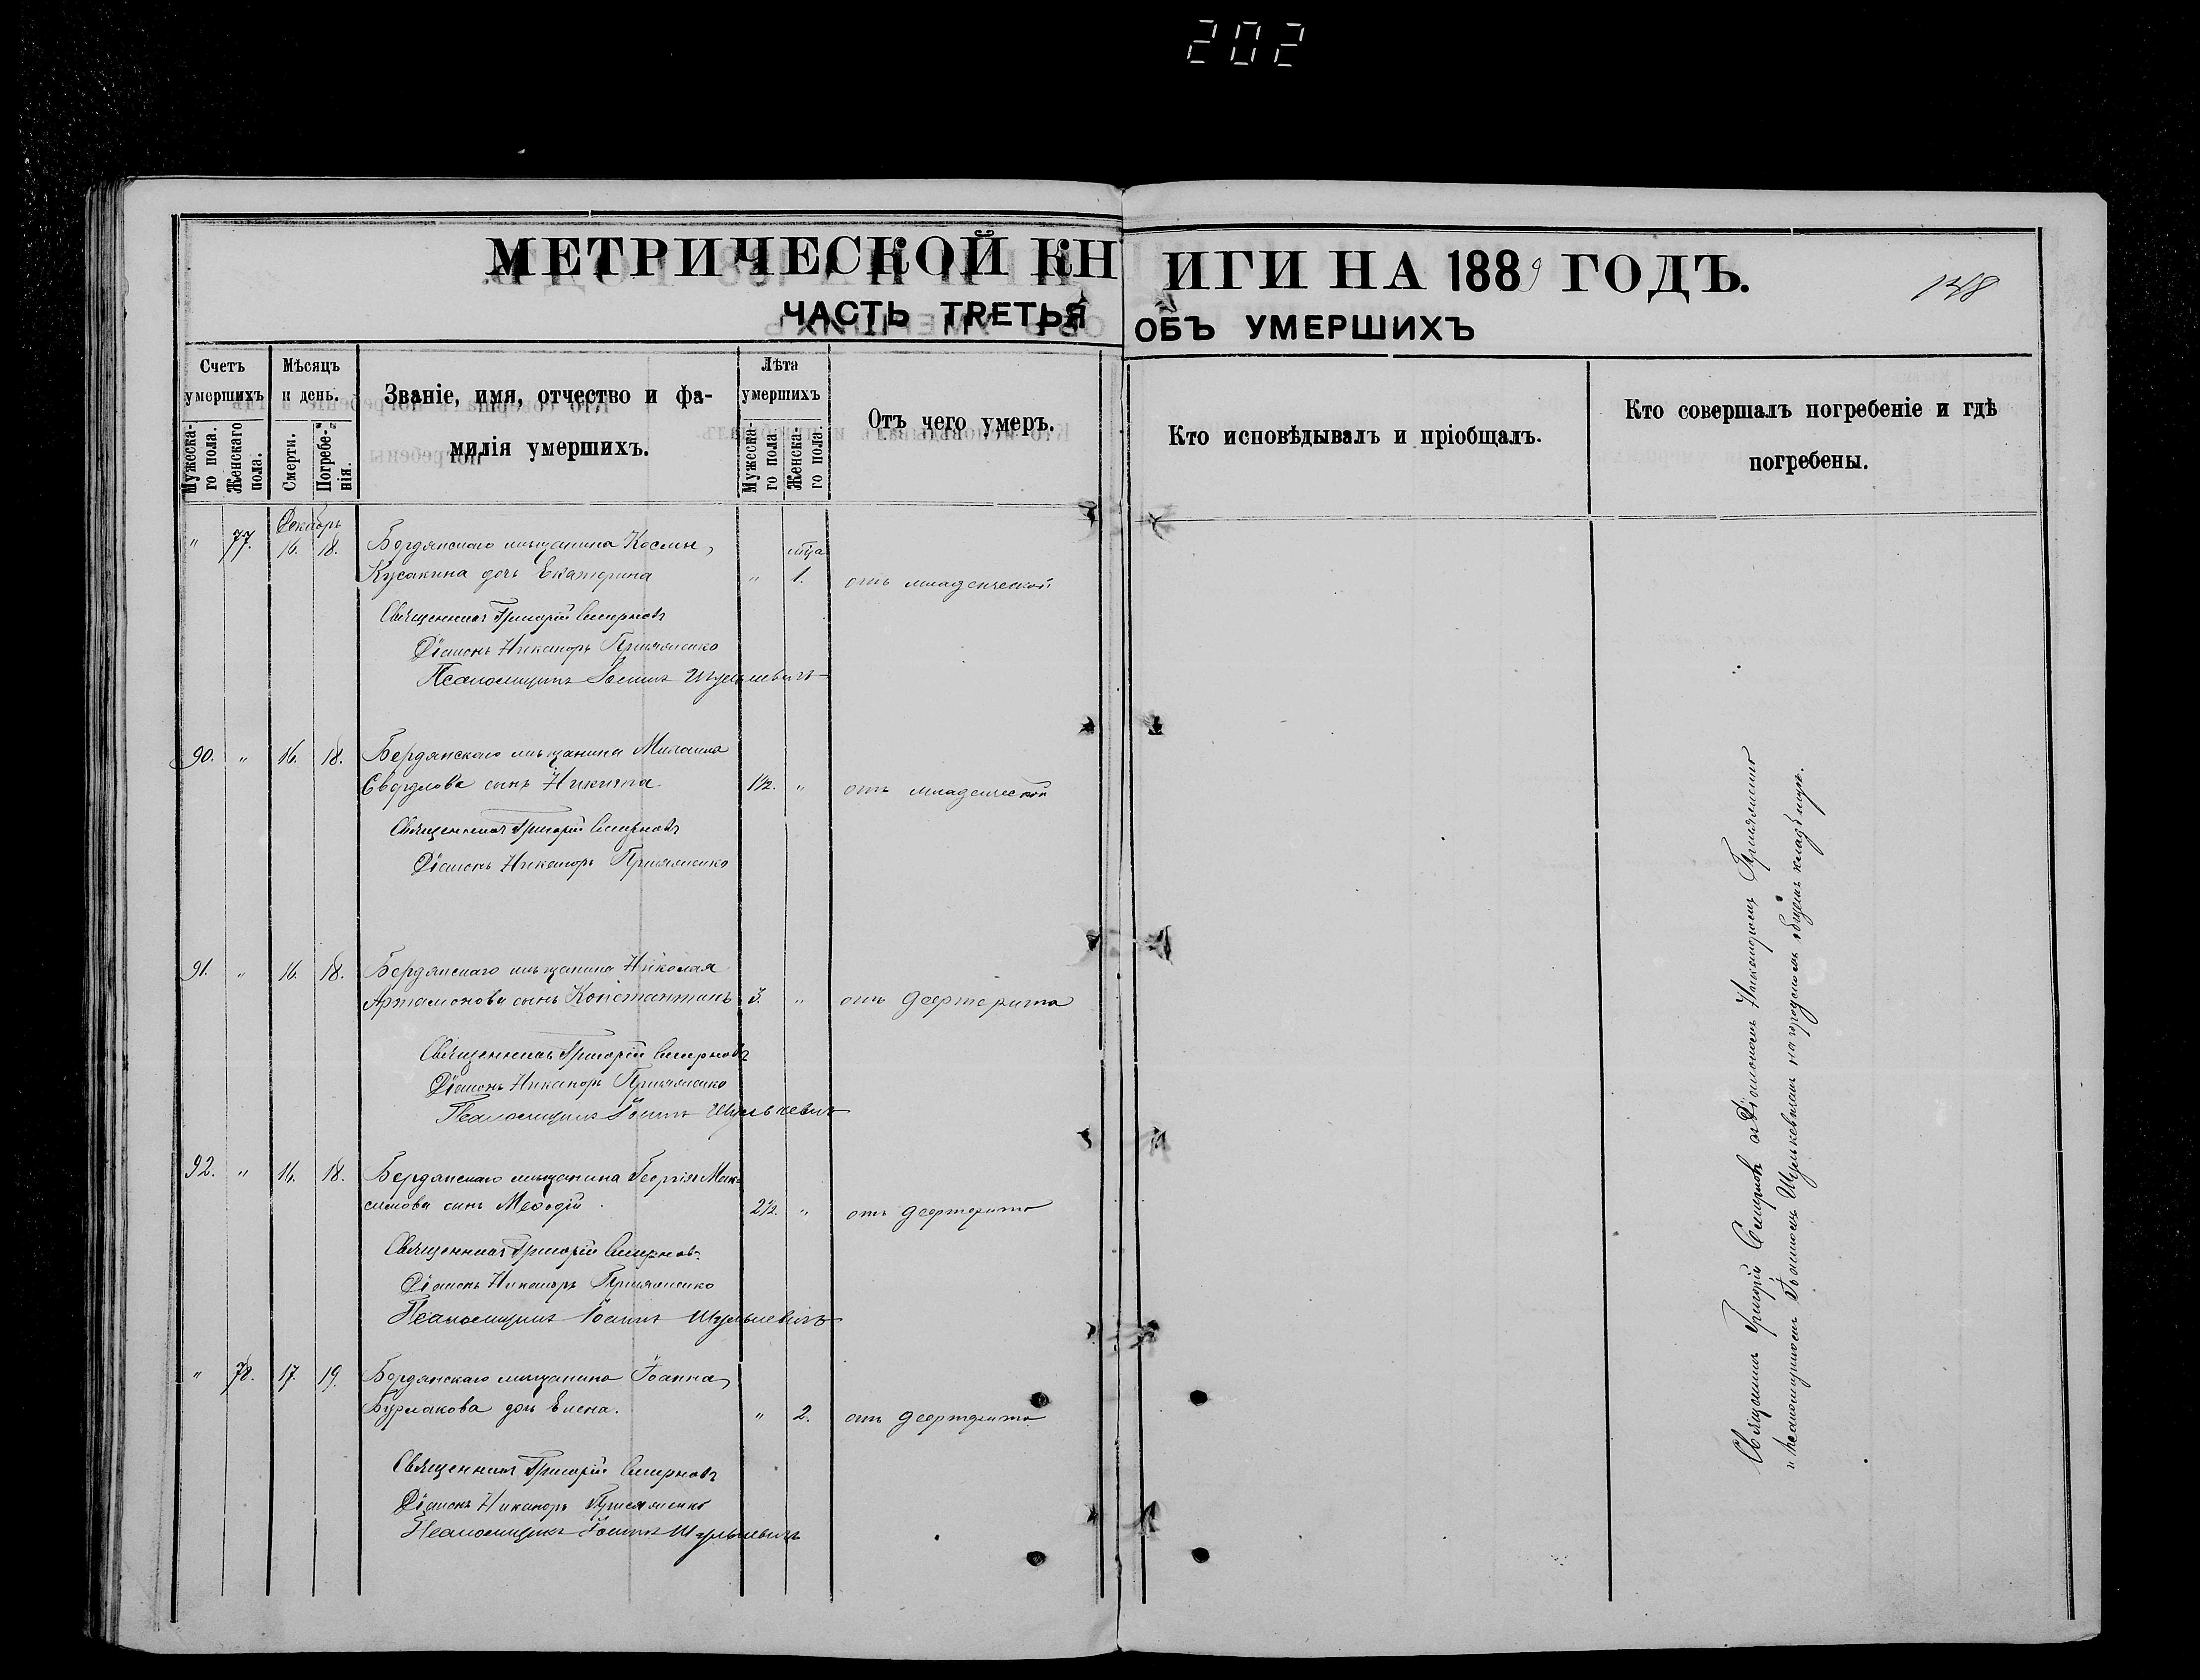 202
МЕТРИЧЕСКОЙ КНИГИ НА 1889 ГОДЪ.
148
ЧАСТЬ ТРЕТЬЯ ОБЪ УМЕРШИХЪ
Счетъ умершихъ
Мужеска-го пола.
Женскаго пола.
Мѣсяцъ и день.
Смерти.
Погребе-нія.
Званіе, имя, отчество и фа-
милія умершихъ.
Лѣта умершихъ
Мужеска-го пола
Женска-го пола.
Отъ чего умеръ.
Кто исповѣдывалъ и пріобщалъ.
Кто совершалъ погребеніе и гдѣ
погребены.
Декабрь
" 77. 16. 18. Бердянскаго мѣщанина Космы
Кусакина дочь Екатерина " 1. отъ младенческой
Священникъ Григорій Смирновъ
Діаконъ Никаноръ
Псаломщикъ Іоаннъ Шулькевичъ
90. " 16. 18. Бердянскаго мѣщанина Михаила
Свердлова сынъ Никита 1½. " отъ младенческой
Священникъ Григорій Смирновъ
Діаконъ Никаноръ
91. " 16. 18. Бердянскаго мѣщанина Николая
Артамонова сынъ Константинъ 3. " отъ дефтерита
Священникъ Григорій Смирновъ
Діаконъ Никаноръ
Псаломщикъ Іоаннъ Шулькевичъ
92. " 16. 18. Бердянскаго мѣщанина Георгія Мак-
симова сынъ Меѳодій 2½. " отъ дефтерита
Священникъ Григорій Смирновъ
Діаконъ Никаноръ
Псаломщикъ Іоаннъ Шулькевичъ
" 78. 17. 19. Бердянскаго мѣщанина Іоанна
Бурлакова дочь Елена. " 2. отъ дефтерита
Священникъ Григорій Смирновъ
Діаконъ Никаноръ
Псаломщикъ Іоаннъ Шулькевичъ
Священникъ Григорій Смирновъ съ Діакономъ Никаноромъ
и псаломщикомъ Іоанномъ Шулькевичемъ на городскомъ общемъ кладбищѣ.